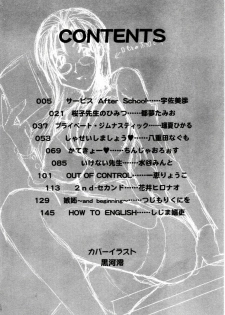 CONTENTS
005 サービス After School……宇佐美渉
021 桜子先生のひみつ……鬱夢たみお
037 プライベート・ジムナスティック……環夏ひかる
053 しゃせいしましょう♥……八重田なぐも
069 かてきょー♥……ちんじゃおろぉす
085 いけない先生……水谷みんと
101 OUT OF CONTROL……一恵りょうこ
113 2nd-セカンド……花井ヒロナオ
129 姉〜and beginning〜……つじもりくにを
145 HOW TO ENGLISH……しじま
カバーイラスト
黒河澪